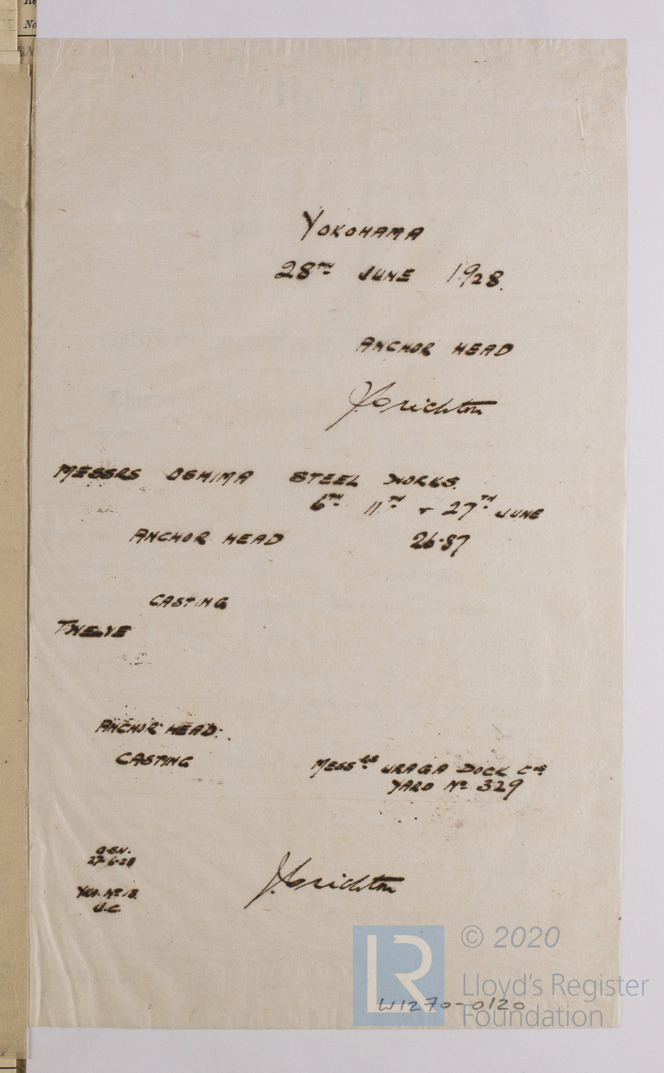 YOKOHAMA
28TH JUNE 1928.
ANCHOR HEAD
J Crichton
MESSRS OSHIMA STEEL WORKS.
6TH 11TH + 27TH JUNE
ANCHOR HEAD 26·87
CASTING
TWELVE
ANCHOR HEAD.
CASTING
MESSRS URAGA DOCK COS
YARD No 329
27-6-28
YKA. No 18.
J.C.
J. Crichton
© 2020
LR
Lloyd's Register
Foundation
W1270-0120